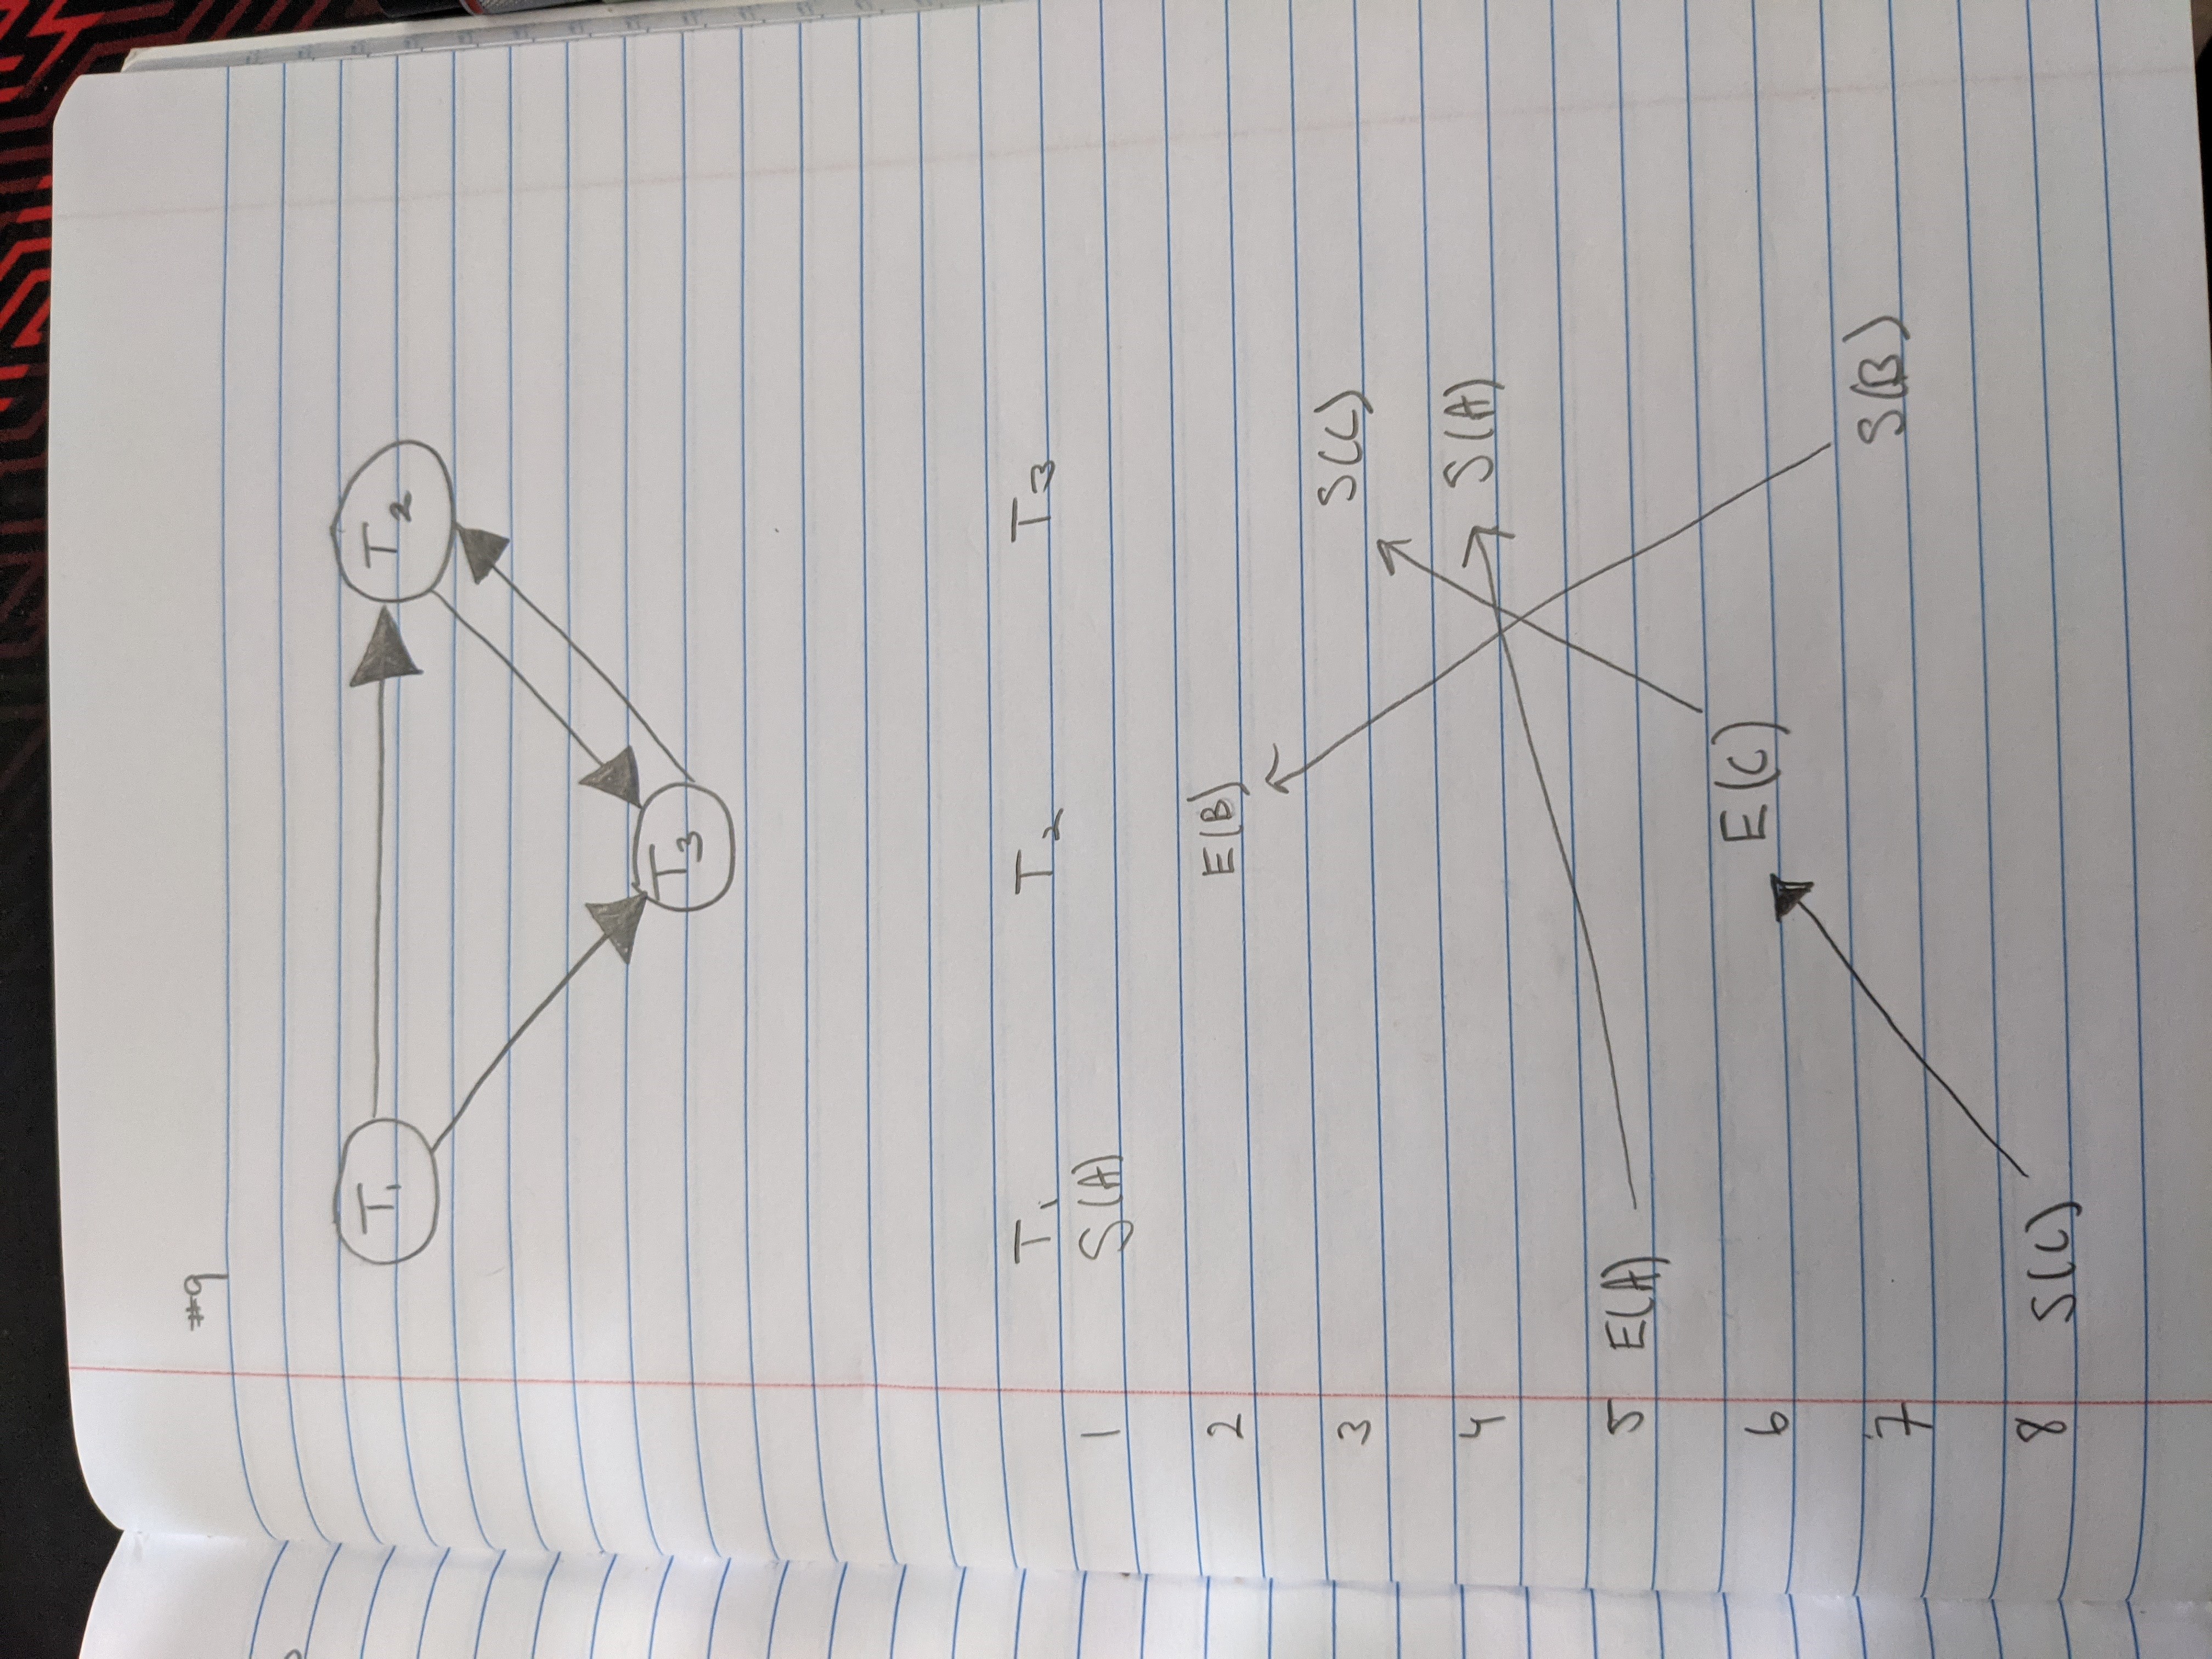 #9
T₁ T₂
T₃
T₁ T₂ T₃
1 S(A)
2 E(B)
3 S(C)
4 S(A)
5 E(A)
6 E(C)
7 S(B)
8 S(C)